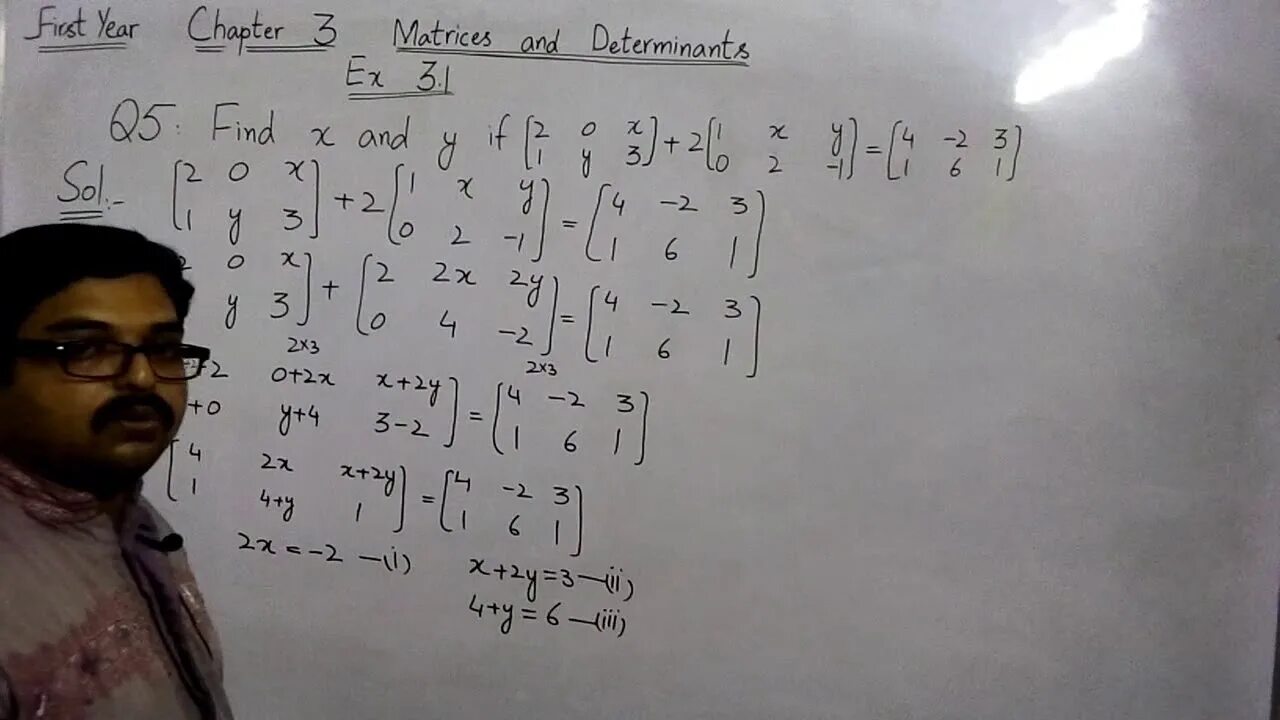 First Year Chapter 3 Matrices and Determinants
Ex 3.1
Q5: Find x and y if [2 0 x; 1 y 3] + 2[1 x y; 0 2 -1] = [4 -2 3; 1 6 1]
Sol:- [2 0 x; 1 y 3] + 2[1 x y; 0 2 -1] = [4 -2 3; 1 6 1]
2 0 x; y 3] 2×3 + [2 2x 2y; 0 4 -2] 2×3 = [4 -2 3; 1 6 1]
+2 0+2x x+2y; +0 y+4 3-2] = [4 -2 3; 1 6 1]
[4 2x x+2y; 1 4+y 1] = [4 -2 3; 1 6 1]
2x = -2 —(i) x+2y=3—(ii)
4+y = 6 —(iii)